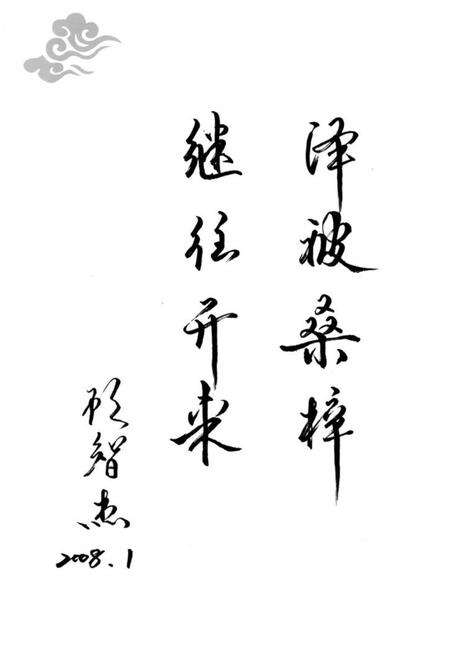 泽被桑梓
继往开来
顾智杰
2008.1